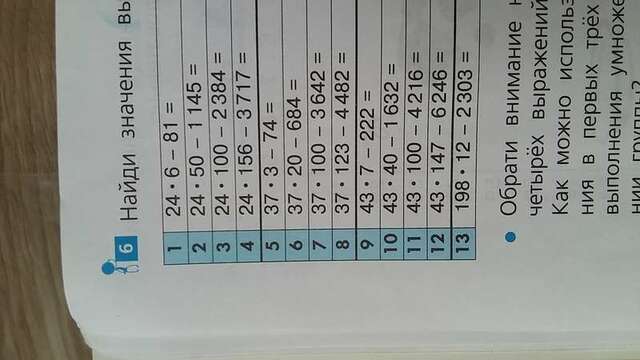 6 Найди значения вы
1 24 · 6 – 81 =
2 24 · 50 – 1 145 =
3 24 · 100 – 2 384 =
4 24 · 156 – 3 717 =
5 37 · 3 – 74 =
6 37 · 20 – 684 =
7 37 · 100 – 3 642 =
8 37 · 123 – 4 482 =
9 43 · 7 – 222 =
10 43 · 40 – 1 632 =
11 43 · 100 – 4 216 =
12 43 · 147 – 6 246 =
13 198 · 12 – 2 303 =
• Обрати внимание н
четырёх выражений
Как можно использ
ния в первых трёх
выполнения умноже
нии группы?